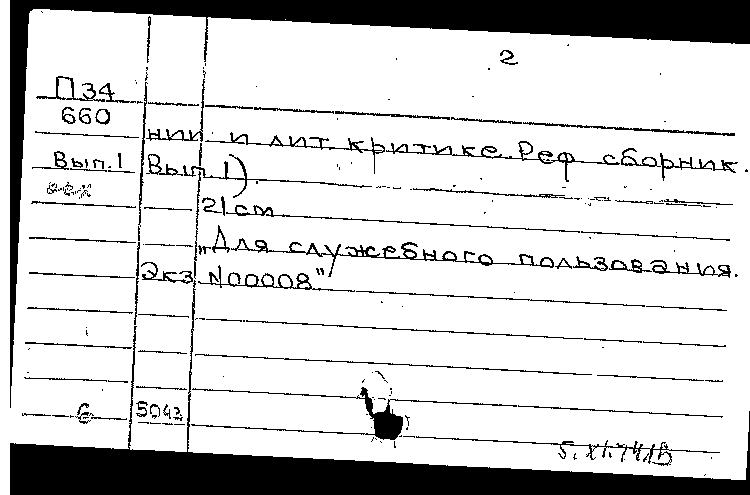 2
П34
660
нии и лит. критике. Реф сборник.
Вып. 1 Вып. 1).
21 cm
„Для служебного пользования.
Экз. N00008"
6 5043
5. XI. 74